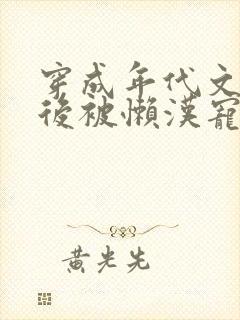 穿成年代文
後被懶漢寵
黃光先